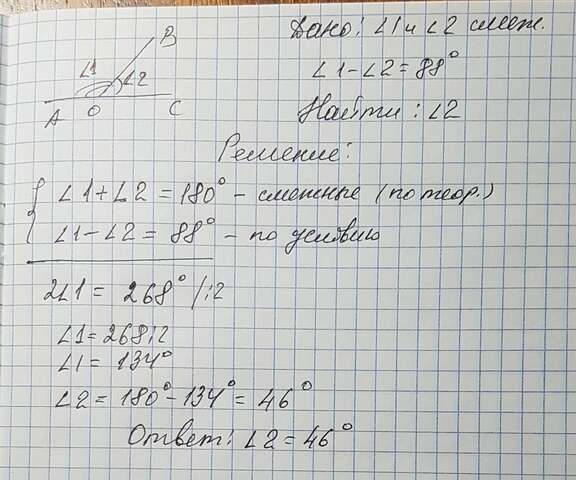 B
∠1
∠2
A O C
Дано: ∠1 и ∠2 смеж.
∠1-∠2=88°
Найти: ∠2
Решение:
{ ∠1+∠2=180° - смежные (по теор.)
∠1-∠2=88° - по условию
2∠1= 268° /:2
∠1=268:2
∠1= 134°
∠2= 180°-134°=46°
Ответ: ∠2=46°